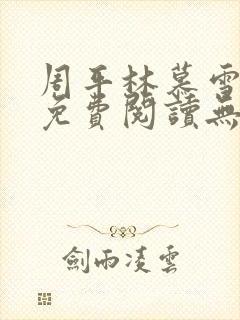 周平林慕雪
免費閱讀無
劍雨凌雲